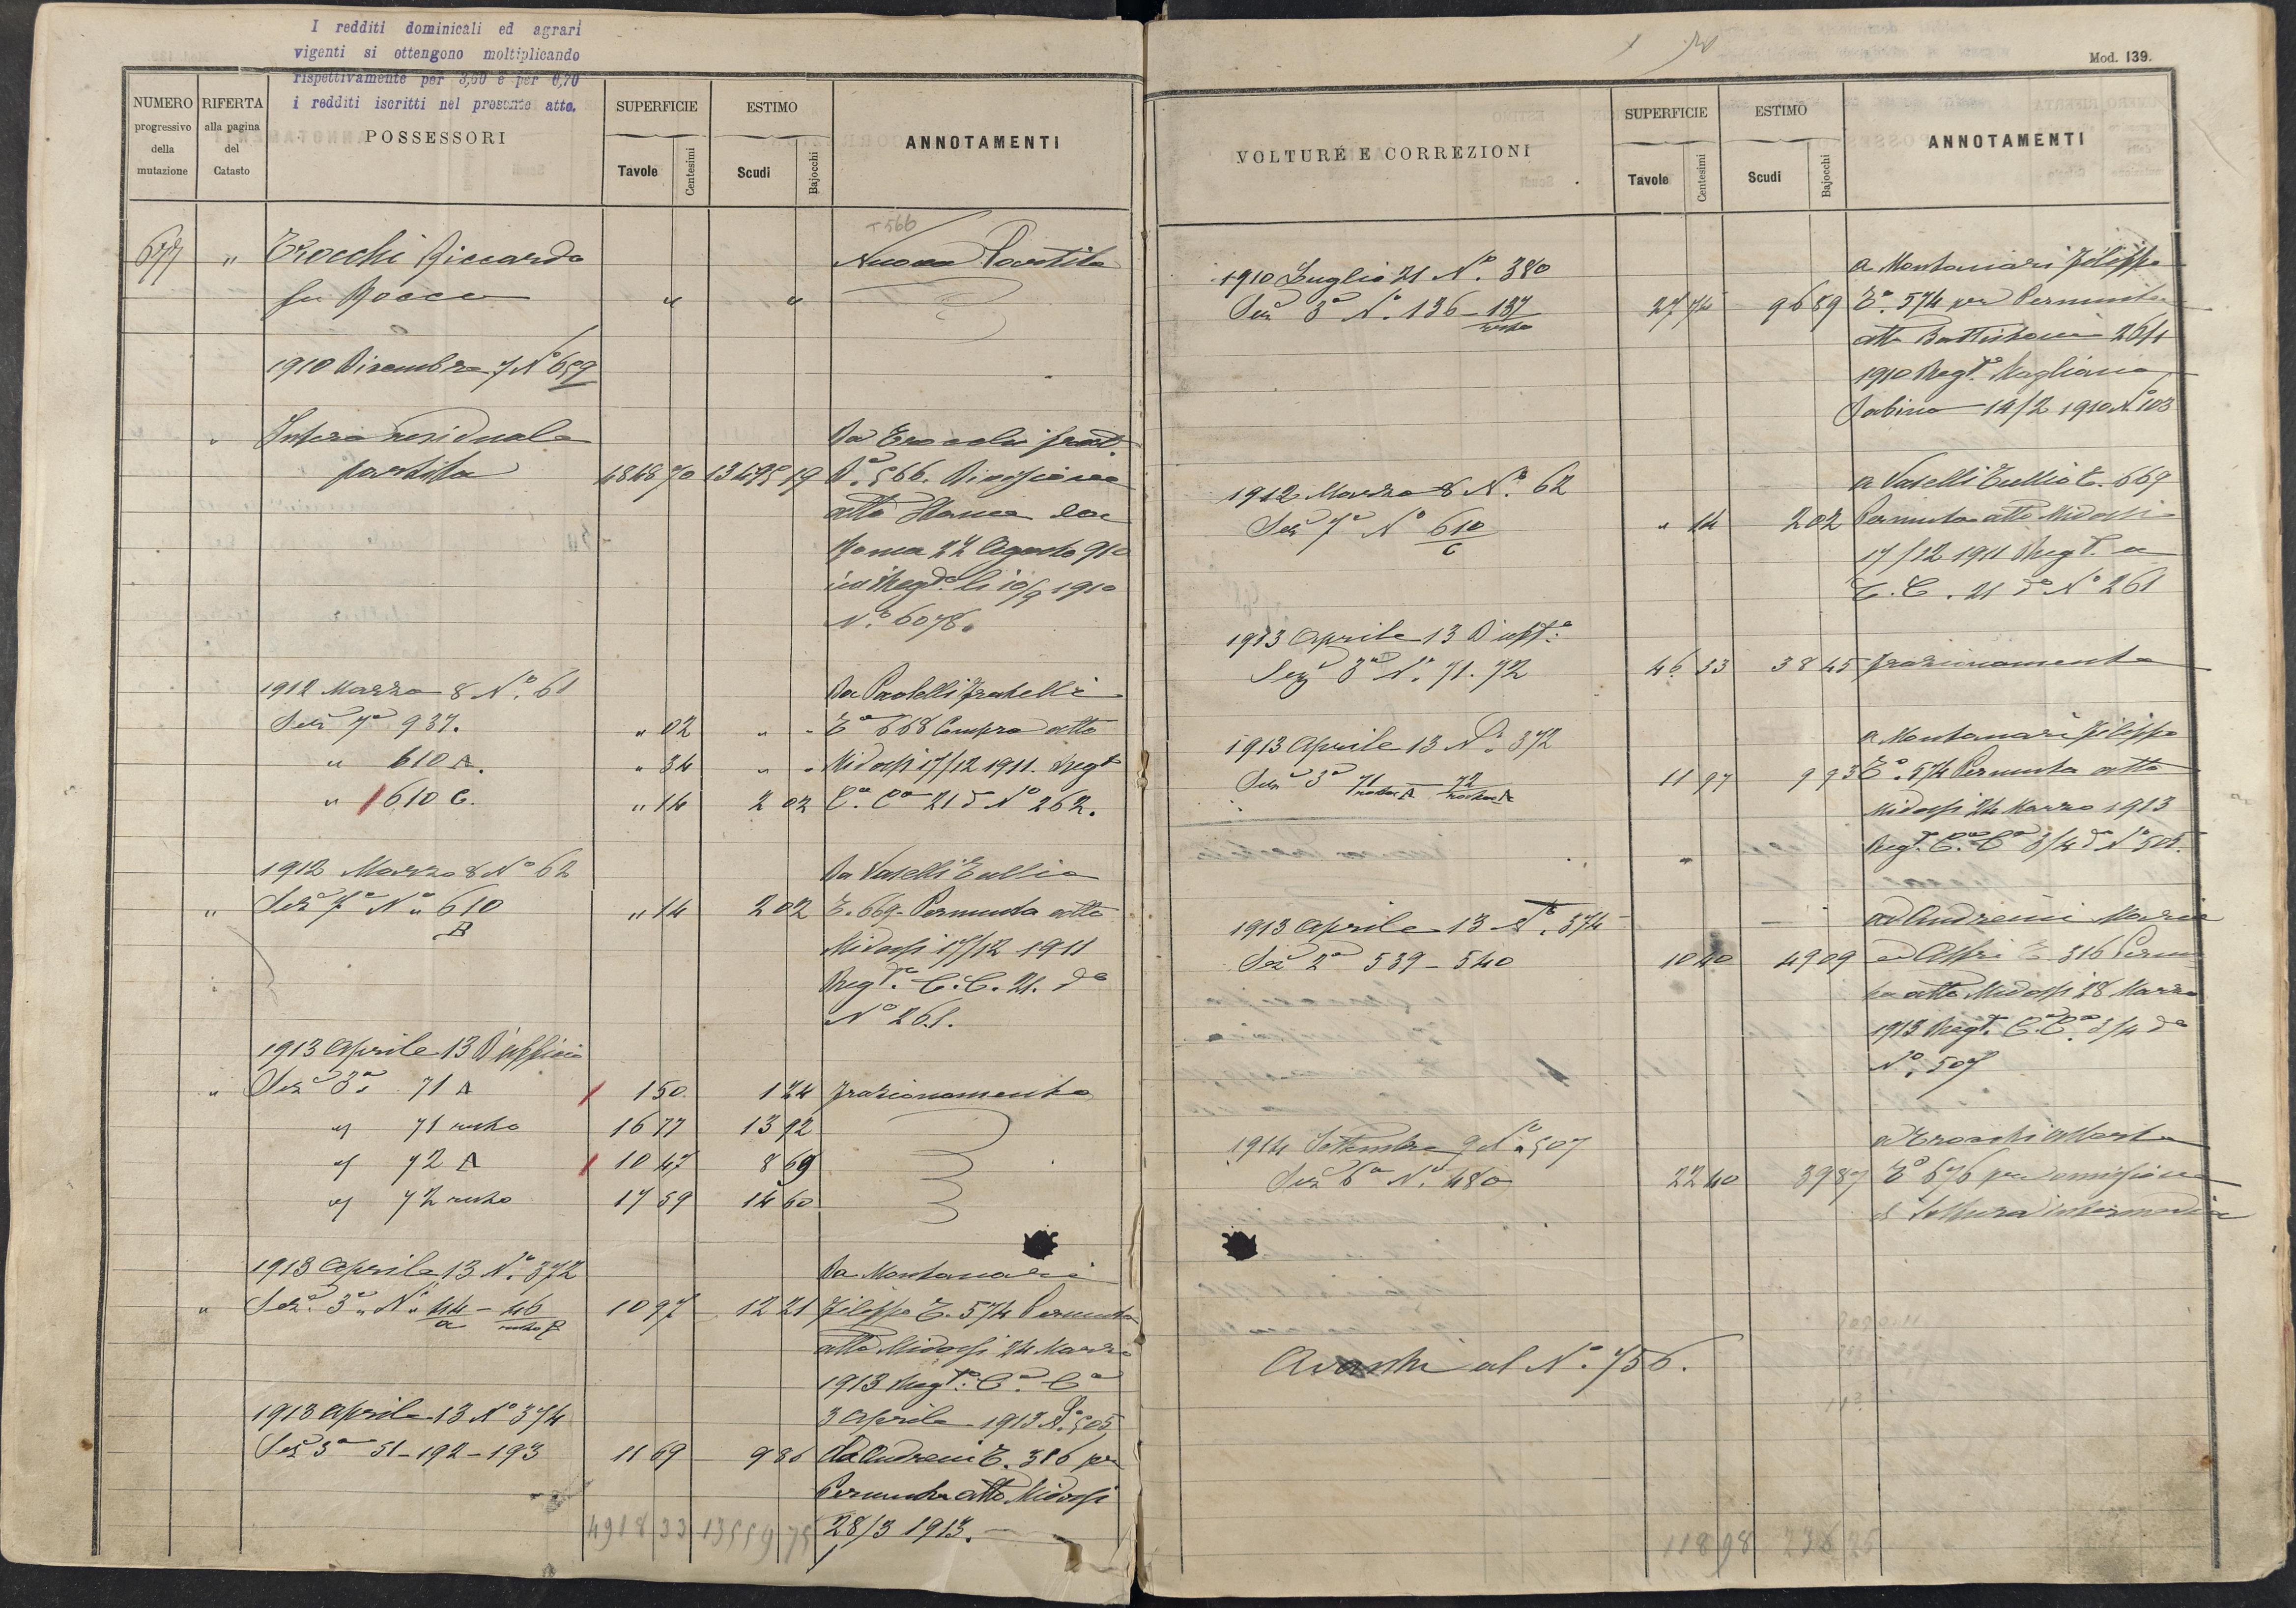 I redditi dominicali ed agrari
vigenti si ottengono moltiplicando
rispettivamente per 3,60 e per 6,70
i redditi iscritti nel presente atto.
NUMERO progressivo della mutazione
RIFERTA alla pagina del Catasto
POSSESSORI
SUPERFICIE Tavole Centesimi
ESTIMO Scudi Bajocchi
ANNOTAMENTI
T 566
677 " Trocchi Riccardo Nuova Partita
fu Rocco " "
1910 Dicembre 7 N° 659
" Intera residuale Da Trocchi frat.
partita 4848 70 13495 19 P. 566. Divisione
atto
Roma 22 Agosto 910
Regto li 10/9 1910
N.° 6078.
1912 Marzo 8 N.° 61 Da Paolelli fratelli
Sez 7a 937. " 02 " " 668 Compra atto
" 610 A. " 34 " " Midossi 17/12 1911. Regt
" 610 C. " 14 2 02 C.a Ca 21 do N° 262.
1912 Marzo 8 N° 62 Da Vaselli Tullio
" Sez 7a N° 610/B " 14 2 02 T. 669. Permuta atto
Midossi 17/12 1911
Regto. C. C. 21. do
N° 261.
1913 Aprile 13 D'ufficio
" Sez 3a 71 A 1 50 1 24 frazionamento
" 71 resto 16 77 13 92
" 72 A 10 47 8 69
" 72 resto 17 59 14 60
1913 Aprile 13 N° 372 Da Montanari
" Sez. 3a N° 44/a - 46/resto 10 97 12 21 Filippo T. 574 Permuta
atto Midossi 24 Marzo
1913 Regto. Ca. Ca
1913 Aprile 13 N° 374 3 Aprile 1913 N° 505
Sez 3a 51-192-193 11 69 9 86 Da Andreni T. 316 per
Permuta atto Midossi
4918 33 13559 75 28/3 1913.
Mod. 139.
VOLTURE E CORREZIONI
SUPERFICIE Tavole Centesimi
ESTIMO Scudi Bajocchi
ANNOTAMENTI
1910 Luglio 21 N° 380 a Montanari Filippo
Sez 3a N° 136 - 137/resto 27 74 96 89 T. 574 per Permuta
atto Battistoni 26/1
1910 Regt. Magliano
Sabino 14/2 1910 N° 103
1912 Marzo 8 N° 62 a Vaselli Tullio T. 669
Sez 7a N° 610/C " 14 2 02 Permuta atto Midossi
17/12 1911 Regt. a
C. C. 21 do N° 261
1913 Aprile 13 D'uffo
Sez 3a N° 71. 72 46 33 38 45 frazionamento
1913 Aprile 13 N° 372 a Montanari Filippo
Sez 3a 71/resto A 72/resto A 11 97 9 93 T. 574 Permuta atto
Midossi 24 Marzo 1913
Regt. Ca. Ca 3/4 do N° 505.
1913 Aprile 13 N° 374 ad Andreini Maria
Sez 2a 539-540 10 40 49 09 T. 316
atto Midossi 28 Marzo
1913 Regt. C. Ca 3/4 do
N° 507
1914 Settembre 9 N° 507 a Trocchi
Sez 6a N° 480 22 40 39 87 T. 676 per omissione
di Voltura intermedia
al N° 756.
118 98 236 25